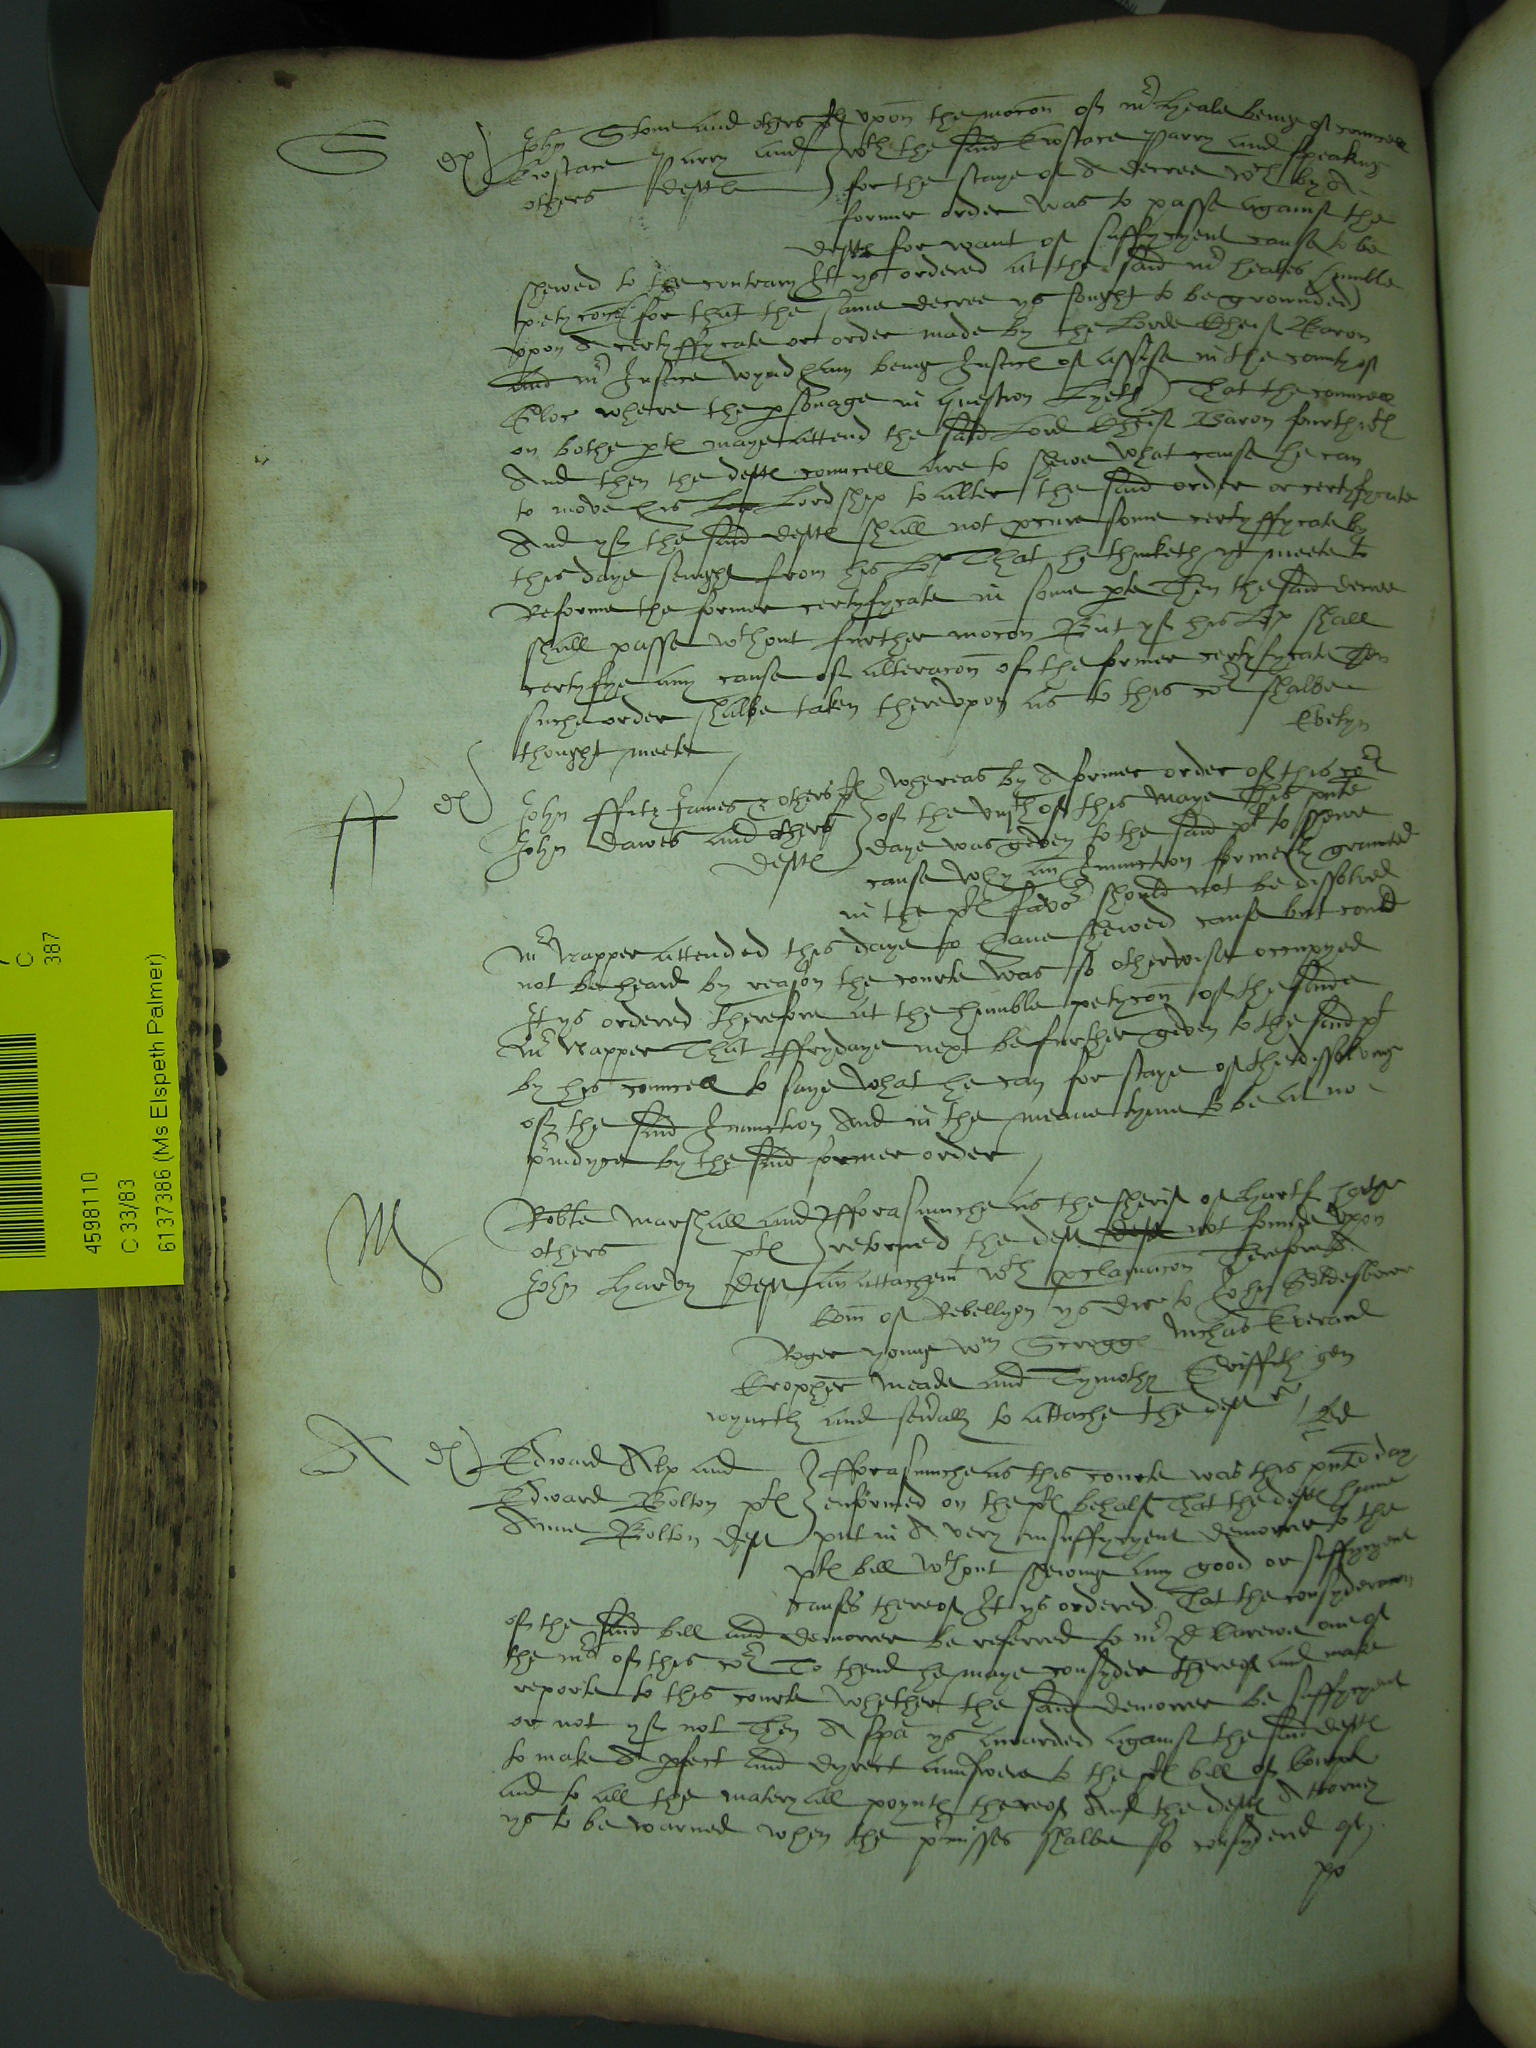 S
John Stone and others pl upon the mocon of mr Heale being of councell
Eustace Parry and wth the said Eustace Parry and speaking
others deftes for the staye of A decree wch by A
former order was to passe against the
deftes for want of suffycyent cause to be
shewed to the contrary It ys ordered at the said mr heales humble
petycon (for that the same decree ys sought to be grownded
upon A certyffycate or order made by the Lorde Cheif Baron
and mr Justice wyndham being Justices of assise in the county of
Gloc where the psonage in question Lyeth) That the councell
on bothe ptes maye attend the said Lord Cheif Baron
And then the deftes councell are to shewe what cause he can
to move his Lordship to alter the said order or certyfycate
And yf the said deftes shall not pcure some certyffycate by
this daye senight from his Lop That he thinketh yt meete to
Reforme the former certyfycate in some pte Then the said decree
shall passe wthout further mocon But yf his Lop shall
certyfye any cause of alteracon of the former certyfycate Then
suche order shalbe taken thereupon as to this cort shalbe
thought meete
Evelyn
ff
John ffitz James & others pl whereas by A former order of this cort
John Dawes and others of the of this Maye this pnte
deftes daye was geven to the said pl to shewe
cause why an Iniunction formerly graunted
in the ples favor should not be dissolved
mr Napper attended this daye to have shewed cause but could
not be heard by reason the courte was so otherwise occupyed
It ys ordered therefore at the humble petycon of the saide
mr Napper That ffrydaye next be further geven to the said pl
by his councell to saye what he can for staye of the dissolving
of the said Iniunction And in the meane tyme to be at no
piudyce by the said former order
M
Robte Marshall and fforasmuche as the Sherif of Hartf hathe
others ples retorned the deft not founde upon
John Harvy deft an attachemt wth pclamacon Therefore A
Com of Rebellyon ys dire to John
Roger Yonge wm Scrogge Nichas Everard
Xropher Meade and Tymothy Griffith gen
and sevally to attache the deft
A
Edward Alp and fforasmuche as this courte was this pnte day
Edward Bolton ples enformed on the ples behalf That the deftes have
Anne Bolton deft put in A very insuffycyent demorrer to the
ples bill wthout shewing any good or suffycyent
causes thereof It ys ordered That the consyderacon
of the said bill and demorrer be referred to mr D Carewe one of
the mrs of this cort To thend he maye consyder thereof and make
reporte to this courte whether the said demorrer be suffycyent
or not yf not Then A spa ys awarded against the said deftes
to make A pfect and dyrect aunswere to the ples bill of
and to all the materyall poyntes thereof And the deftes Attorney
ys to be warned when the pmisses shalbe so consydered of
po
C
387
4598110
C 33/83
6137386 (Ms Elspeth Palmer)